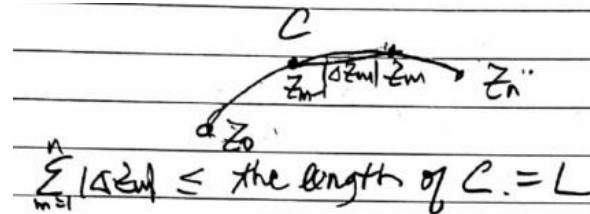 C
Z_{m-1} |ΔZ_m| Z_m Z_n"
Z_0
\sum_{m=1}^{n} |ΔZ_m| ≤ the length of C. = L